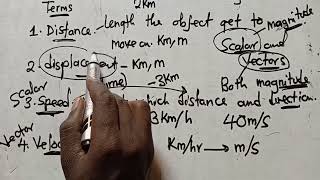 Terms 2km
1. Distance. Length the object get to magnitude
move on. Km/m Scalar and
Vectors
2 displacement - Km/m
3km Both magnitude
Scalar
3. Speed which distance and direction.
3Km/h 40m/s
Vector
4. Velo Km/hr → m/s